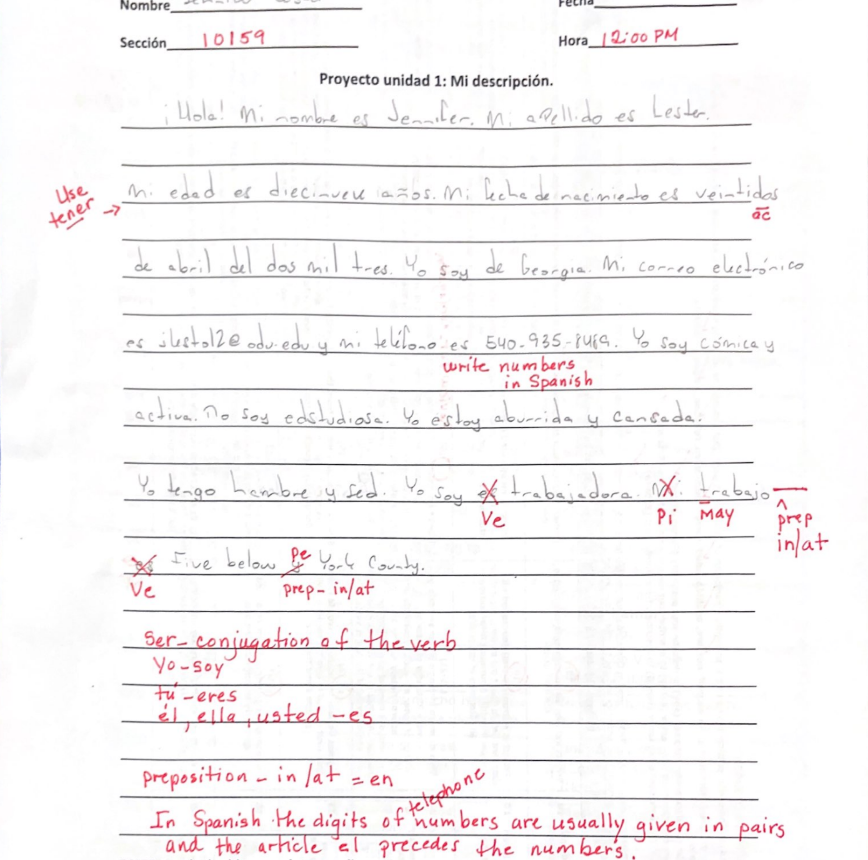 Nombre
Fecha
Sección 10159
Hora 12:00 PM
Proyecto unidad 1: Mi descripción.
¡Hola! Mi nombre es Jennifer. Mi apellido es Lester.
Use tener →
Mi edad es diecinveve años. Mi fecha de nacimiento es veintidos
ac
de abril del dos mil tres. Yo soy de Georgia. Mi correo electrónico
es @odu.edu y mi teléfono es 540-935-8469. Yo soy cómica y
write numbers
in Spanish
activa. No soy edstudiosa. Yo estoy aburrida y cansada.
Yo tengo hambre y sed. Yo soy es trabajadora. Mi trabajo
Ve Pi May prep
in/at
es Five below y York County.
pe
Ve prep-in/at
Ser-conjugation of the verb
Yo-soy
tú-eres
él, ella, usted-es
preposition - in/at = en
telephone
In Spanish the digits of numbers are usually given in pairs
and the article el precedes the numbers.